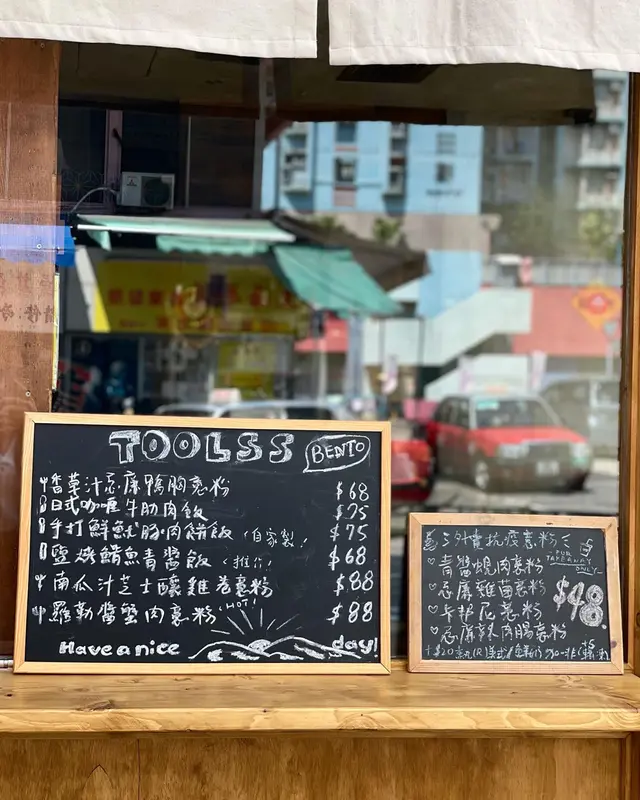 TOOLSS BENTO
香草汁忌廉鴨胸意粉 $68
日式咖喱牛肋肉飯 $75
手打鮮魷豚肉餅飯(自家製! $75
鹽烤鯖魚青醬飯(推介! $68
南瓜汁芝士釀雞卷意粉 $88
羅勒醬蟹肉意粉(HOT! $88
Have a nice day!
外賣抗疫意粉
FOR TAKEAWAY ONLY
青醬蜆肉意粉
忌廉雞菌意粉
卡邦尼意粉
忌廉辣肉腸意粉
$48
+$20